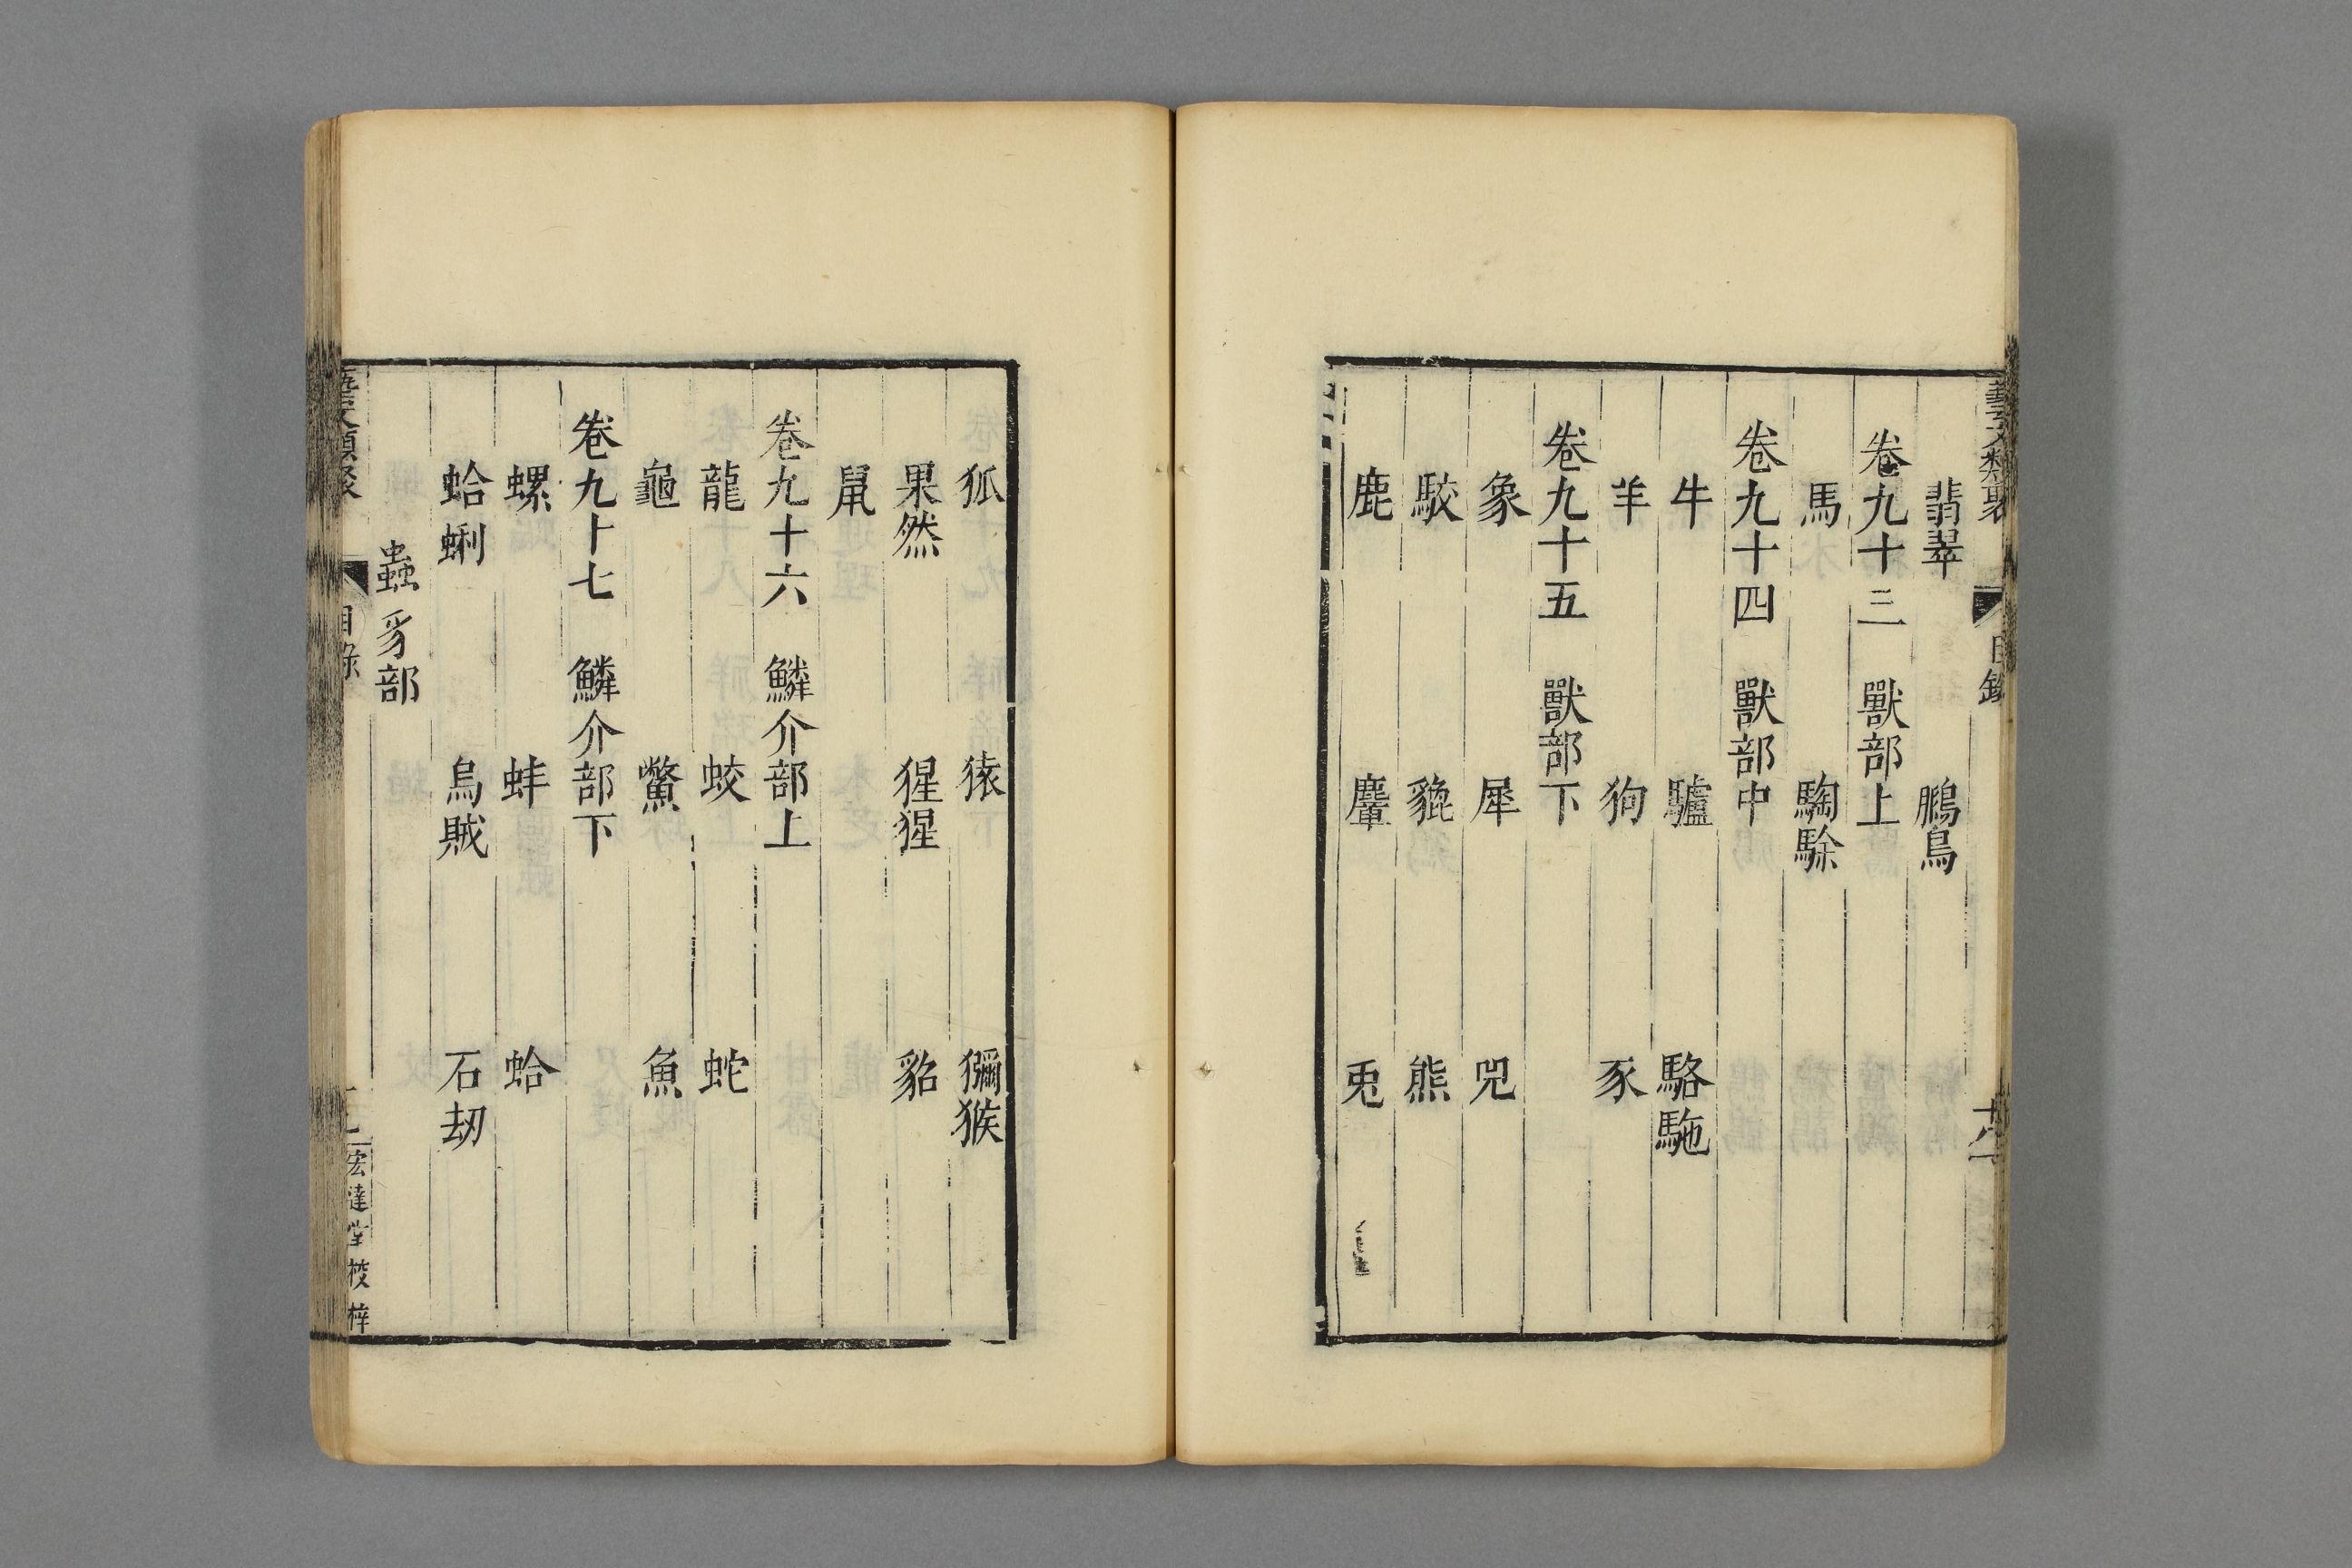 翡翠 鵬鳥
卷九十三 獸部上
馬 騊駼
卷九十四 獸部中
牛 驢 駱駞
羊 狗 豕
卷九十五 獸部下
象 犀 兕
駮 貔 熊
鹿 麞 兎
狐 猿 獼猴
果然 猩猩 貂
鼠
卷九十六 鱗介部上
龍 蛟 蛇
龜 鱉 魚
卷九十七 鱗介部下
螺 蚌 蛤
蛤蜊 烏賊 石刼
蟲豸部
藝文類聚 目錄 宏達堂校梓